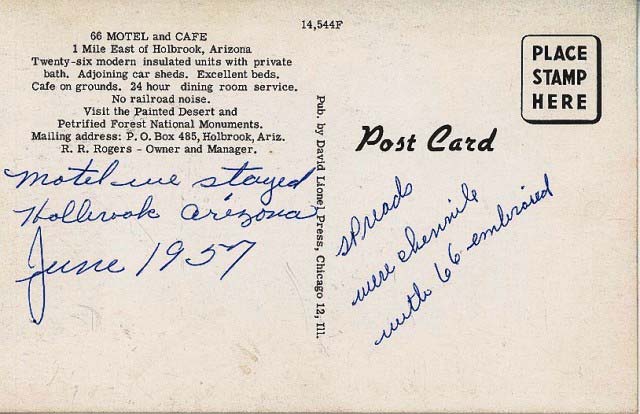 14,544F
66 MOTEL and CAFE
1 Mile East of Holbrook, Arizona
Twenty-six modern insulated units with private
bath. Adjoining car sheds. Excellent beds.
Cafe on grounds. 24 hour dining room service.
No railroad noise.
Visit the Painted Desert and
Petrified Forest National Monuments.
Mailing address: P. O. Box 485, Holbrook, Ariz.
R. R. Rogers - Owner and Manager.
motel we stayed
Holbrook Arizona
June 1957
Pub. by David Lionel Press, Chicago 12, Ill.
Post Card
PLACE
STAMP
HERE
spreads
were chennile
with 66 embroied